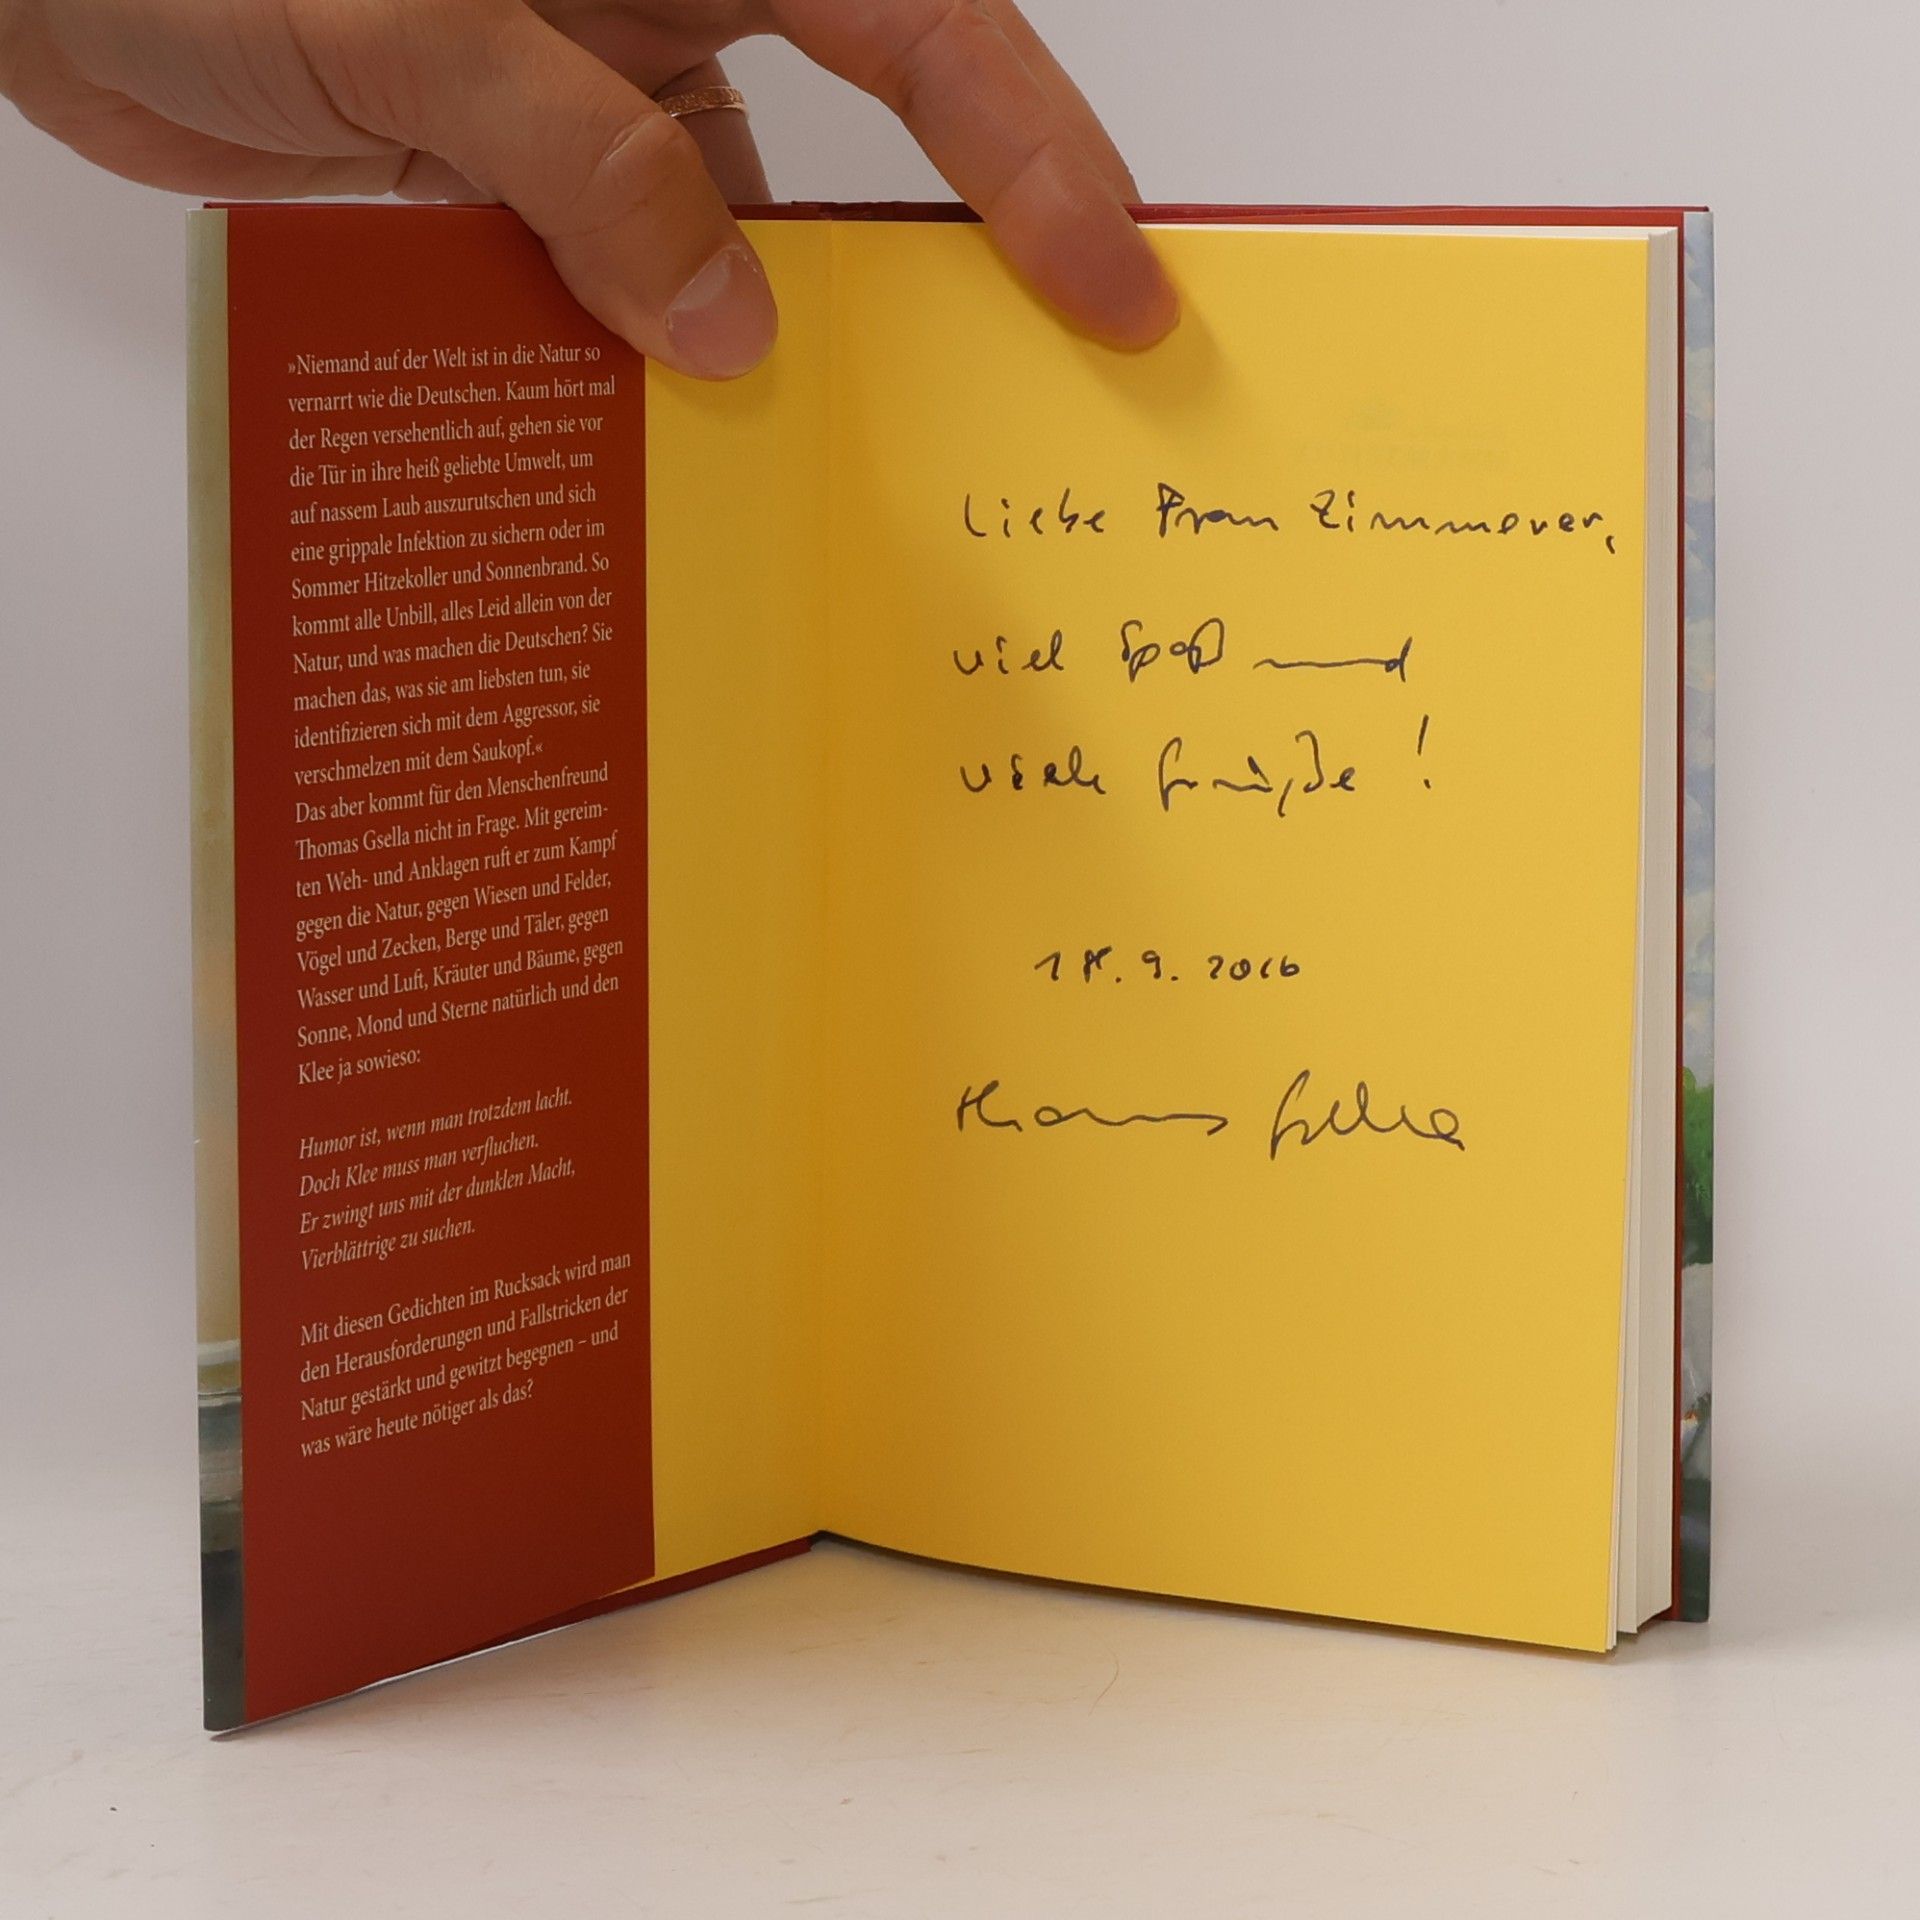 »Niemand auf der Welt ist in die Natur so
vernarrt wie die Deutschen. Kaum hört mal
der Regen versehentlich auf, gehen sie vor
die Tür in ihre heiß geliebte Umwelt, um
auf nassem Laub auszurutschen und sich
eine grippale Infektion zu sichern oder im
Sommer Hitzekoller und Sonnenbrand. So
kommt alle Unbill, alles Leid allein von der
Natur, und was machen die Deutschen? Sie
machen das, was sie am liebsten tun, sie
identifizieren sich mit dem Aggressor, sie
verschmelzen mit dem Saukopf.«
Das aber kommt für den Menschenfreund
Thomas Gsella nicht in Frage. Mit gereim-
ten Weh- und Anklagen ruft er zum Kampf
gegen die Natur, gegen Wiesen und Felder,
Vögel und Zecken, Berge und Täler, gegen
Wasser und Luft, Kräuter und Bäume, gegen
Sonne, Mond und Sterne natürlich und den
Klee ja sowieso:
Humor ist, wenn man trotzdem lacht.
Doch Klee muss man verfluchen.
Er zwingt uns mit der dunklen Macht,
Vierblättrige zu suchen.
Mit diesen Gedichten im Rucksack wird man
den Herausforderungen und Fallstricken der
Natur gestärkt und gewitzt begegnen – und
was wäre heute nötiger als das?
Liebe Frau Zimmerer,
viel Spaß und
viele Grüße!
18.9.2016
Thomas Gsella